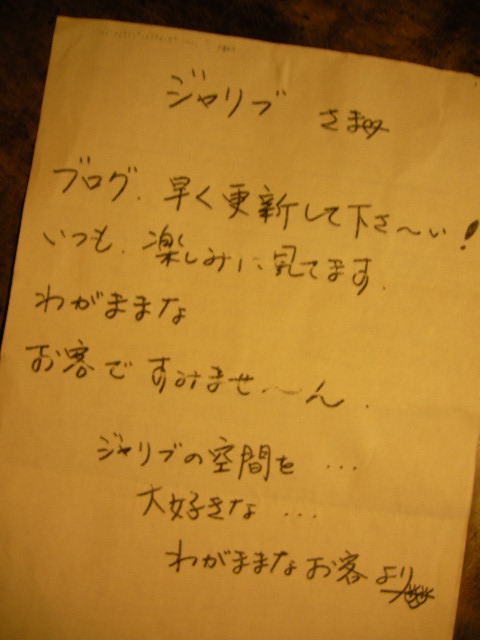 ジャリブ さま
ブログ、早く更新して下さ〜い!
いつも、楽しみに見てます.
わがままな
お客ですみませ〜ん.
ジャリブの空間を...
大好きな...
わがままなお客より